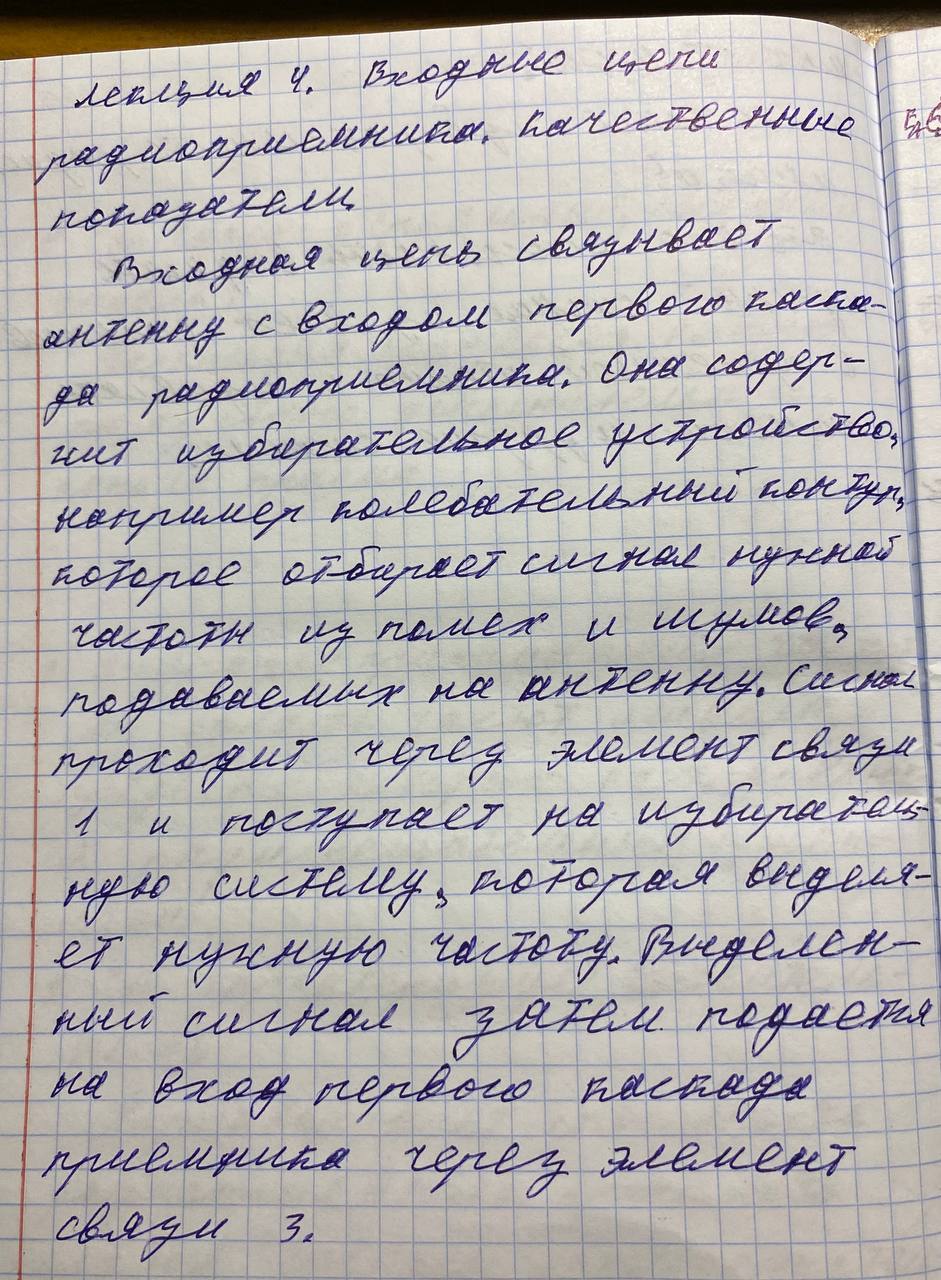 лекция 4. Входные цепи
радиоприемника. качественные
показатели.
Входная цепь связывает
антенну с входом первого каска-
да радиоприемника. Она содер-
жит избирательное устройство,
например колебательный контур,
которое отбирает сигнал нужной
частоты из помех и шумов,
подаваемых на антенну. Сигнал
проходит через элемент связи
1 и поступает на избиратель-
ную систему, которая выделя-
ет нужную частоту. Выделен-
ный сигнал затем подается
на вход первого каскада
приемника через элемент
связи 3.